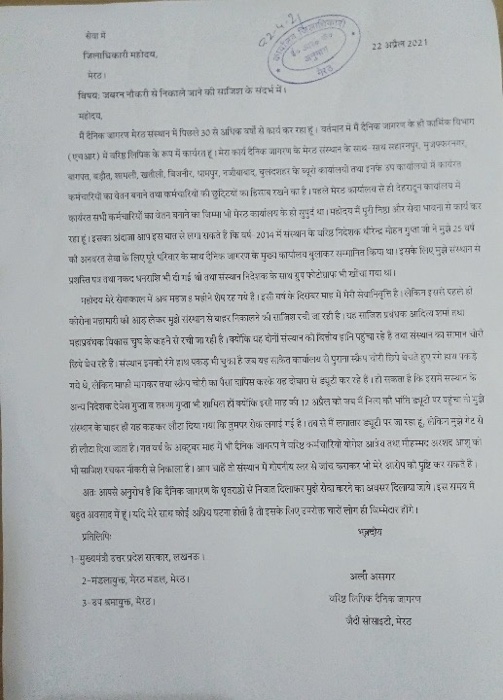 सेवा में
22-4-21
22 अप्रैल 2021
जिलाधिकारी महोदय,
मेरठ।
विषय: जबरन नौकरी से निकाले जाने की साजिश के संदर्भ में।
महोदय,
मैं दैनिक जागरण मेरठ संस्थान में पिछले 30 से अधिक वर्षों से कार्य कर रहा हूं। वर्तमान में मैं दैनिक जागरण के ही कार्मिक विभाग
(एचआर) में वरिष्ठ लिपिक के रूप में कार्यरत हूं। मेरा कार्य दैनिक जागरण के मेरठ संस्थान के साथ-साथ सहारनपुर, मुजफ्फरनगर,
बागपत, बड़ौत, शामली, खतौली, बिजनौर, धामपुर, नजीबाबाद, बुलंदशहर के ब्यूरो कार्यालयों तथा इनके उप कार्यालयों में कार्यरत
कर्मचारियों का वेतन बनाने तथा कर्मचारियों की छुट्टियों का हिसाब रखने का है। पहले मेरठ कार्यालय से ही देहरादून कार्यालय में
कार्यरत सभी कर्मचारियों का वेतन बनाने का जिम्मा भी मेरठ कार्यालय के ही सुपुर्द था। महोदय में पूरी निष्ठा और सेवा भावना से कार्य कर
रहा हूं। इसका अंदाजा आप इस बात से लगा सकते हैं कि वर्ष-2014 में संस्थान के वरिष्ठ निदेशक धीरेन्द्र मोहन गुप्ता जी ने मुझे 25 वर्ष
की अनवरत सेवा के लिए पूरे परिवार के साथ दैनिक जागरण के मुख्य कार्यालय बुलाकर सम्मानित किया था। इसके लिए मुझे संस्थान से
प्रशस्ति पत्र तथा नकद धनराशि भी दी गई थी तथा संस्थान निदेशक के साथ ग्रुप फोटोग्राफ भी खींचा गया था।
महोदय मेरे सेवाकाल में अब महज 8 महीने शेष रह गये हैं। इसी वर्ष के दिसंबर माह में मेरी सेवानिवृत्ति है। लेकिन इससे पहले ही
कोरोना महामारी की आड़ लेकर मुझे संस्थान से बाहर निकालने की साजिश रची जा रही है। यह साजिश प्रबंधक आदित्य शर्मा तथा
महाप्रबंधक विकास चुघ के कहने से रची जा रही है। क्योंकि यह दोनों संस्थान को वित्तीय हानि पहुंचा रहे हैं तथा संस्थान का सामान चोरी
छिपे बेच रहे हैं। संस्थान इनको रंगे हाथ पकड़ भी चुका है जब यह साकेत कार्यालय से पुराना स्क्रैप चोरी छिपे बेचते हुए रंगे हाथ पकड़े
गये थे, लेकिन माफी मांगकर तथा स्क्रैप चोरी का पैसा वापिस करके यह दोबारा से ड्यूटी कर रहे हैं। हो सकता है कि इसमें संस्थान के
अन्य निदेशक देवेश गुप्ता व तरुण गुप्ता भी शामिल हों क्योंकि इसी माह की 12 अप्रैल को जब मैं नित्य की भांति ड्यूटी पर पहुंचा तो मुझे
संस्थान के बाहर ही यह कहकर लौटा दिया गया कि तुमपर रोक लगाई गई है। तब से मैं लगातार ड्यूटी पर जा रहा हूं, लेकिन मुझे गेट से
ही लौटा दिया जाता है। गत वर्ष के अक्टूबर माह में भी दैनिक जागरण ने वरिष्ठ कर्मचारियों योगेश आत्रेय तथा मौहम्मद अरशद आशु को
भी साजिश रचकर नौकरी से निकाला है। आप चाहें तो संस्थान में गोपनीय स्तर से जांच कराकर भी मेरे आरोप की पुष्टि कर सकते हैं।
अतः आपसे अनुरोध है कि दैनिक जागरण के धृतराष्ट्रों से निजात दिलाकर मुझे सेवा करने का अवसर दिलाया जाये। इस समय में
बहुत अवसाद में हूं। यदि मेरे साथ कोई अप्रिय घटना होती है तो इसके लिए उपरोक्त चारों लोग ही जिम्मेदार होंगे।
प्रतिलिपिः
भवदीय
1-मुख्यमंत्री उत्तर प्रदेश सरकार, लखनऊ।
2-मंडलायुक्त, मेरठ मंडल, मेरठ।
3-उप श्रमायुक्त, मेरठ।
अली असगर
वरिष्ठ लिपिक दैनिक जागरण
जैदी सोसाइटी, मेरठ